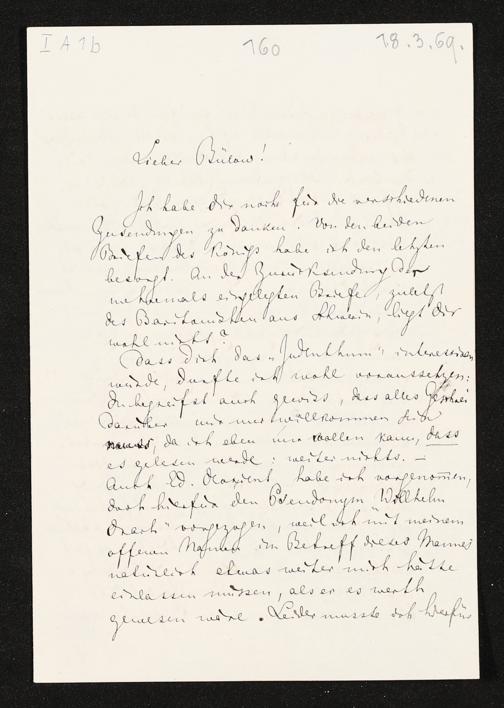 I A 1b 160 18.3.69.
Lieber Bülow!
Ich habe Dir noch für die verschiedenen
Zusendungen zu danken. Von den beiden
Briefen des Königs habe ich den letzten
besorgt. An der Zurücksendung der
mehrmals eingelegten Briefe, zuletzt
des Baritonisten aus Schwerin, liegt Dir
wohl nicht?
Dass Dich das „Judenthum" interessiren
würde, durfte ich wohl voraussetzen:
Du begreifst auch gewiss, dass alles Geschrei
darüber mir nur willkommen sein
muss, da ich eben nur wollen kann, dass
es gelesen werde: weiter nichts. –
Auch Ed. Devrient habe ich vorgenommen,
doch hierfür den Pseudonym Wilhelm
Drach" vorgezogen, weil ich mit meinem
offenen Namen im Betreff dieses Mannes
natürlich etwas weiter mich hätte
einlassen müssen, als er es werth
gewesen wäre. Leider musste ich hierfür